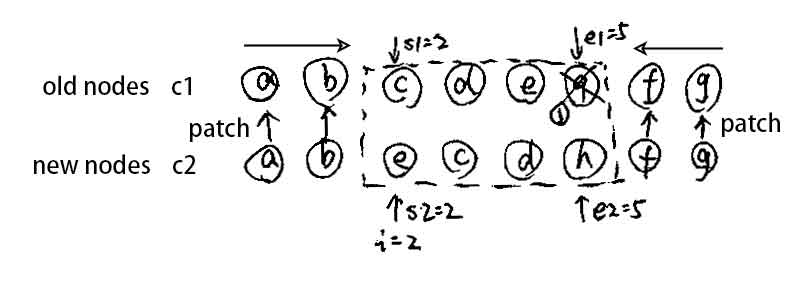 s1=2 e1=5
old nodes c1 a b c d e q f g
①
patch patch
new nodes c2 a b e c d h f g
s2=2 e2=5
i=2